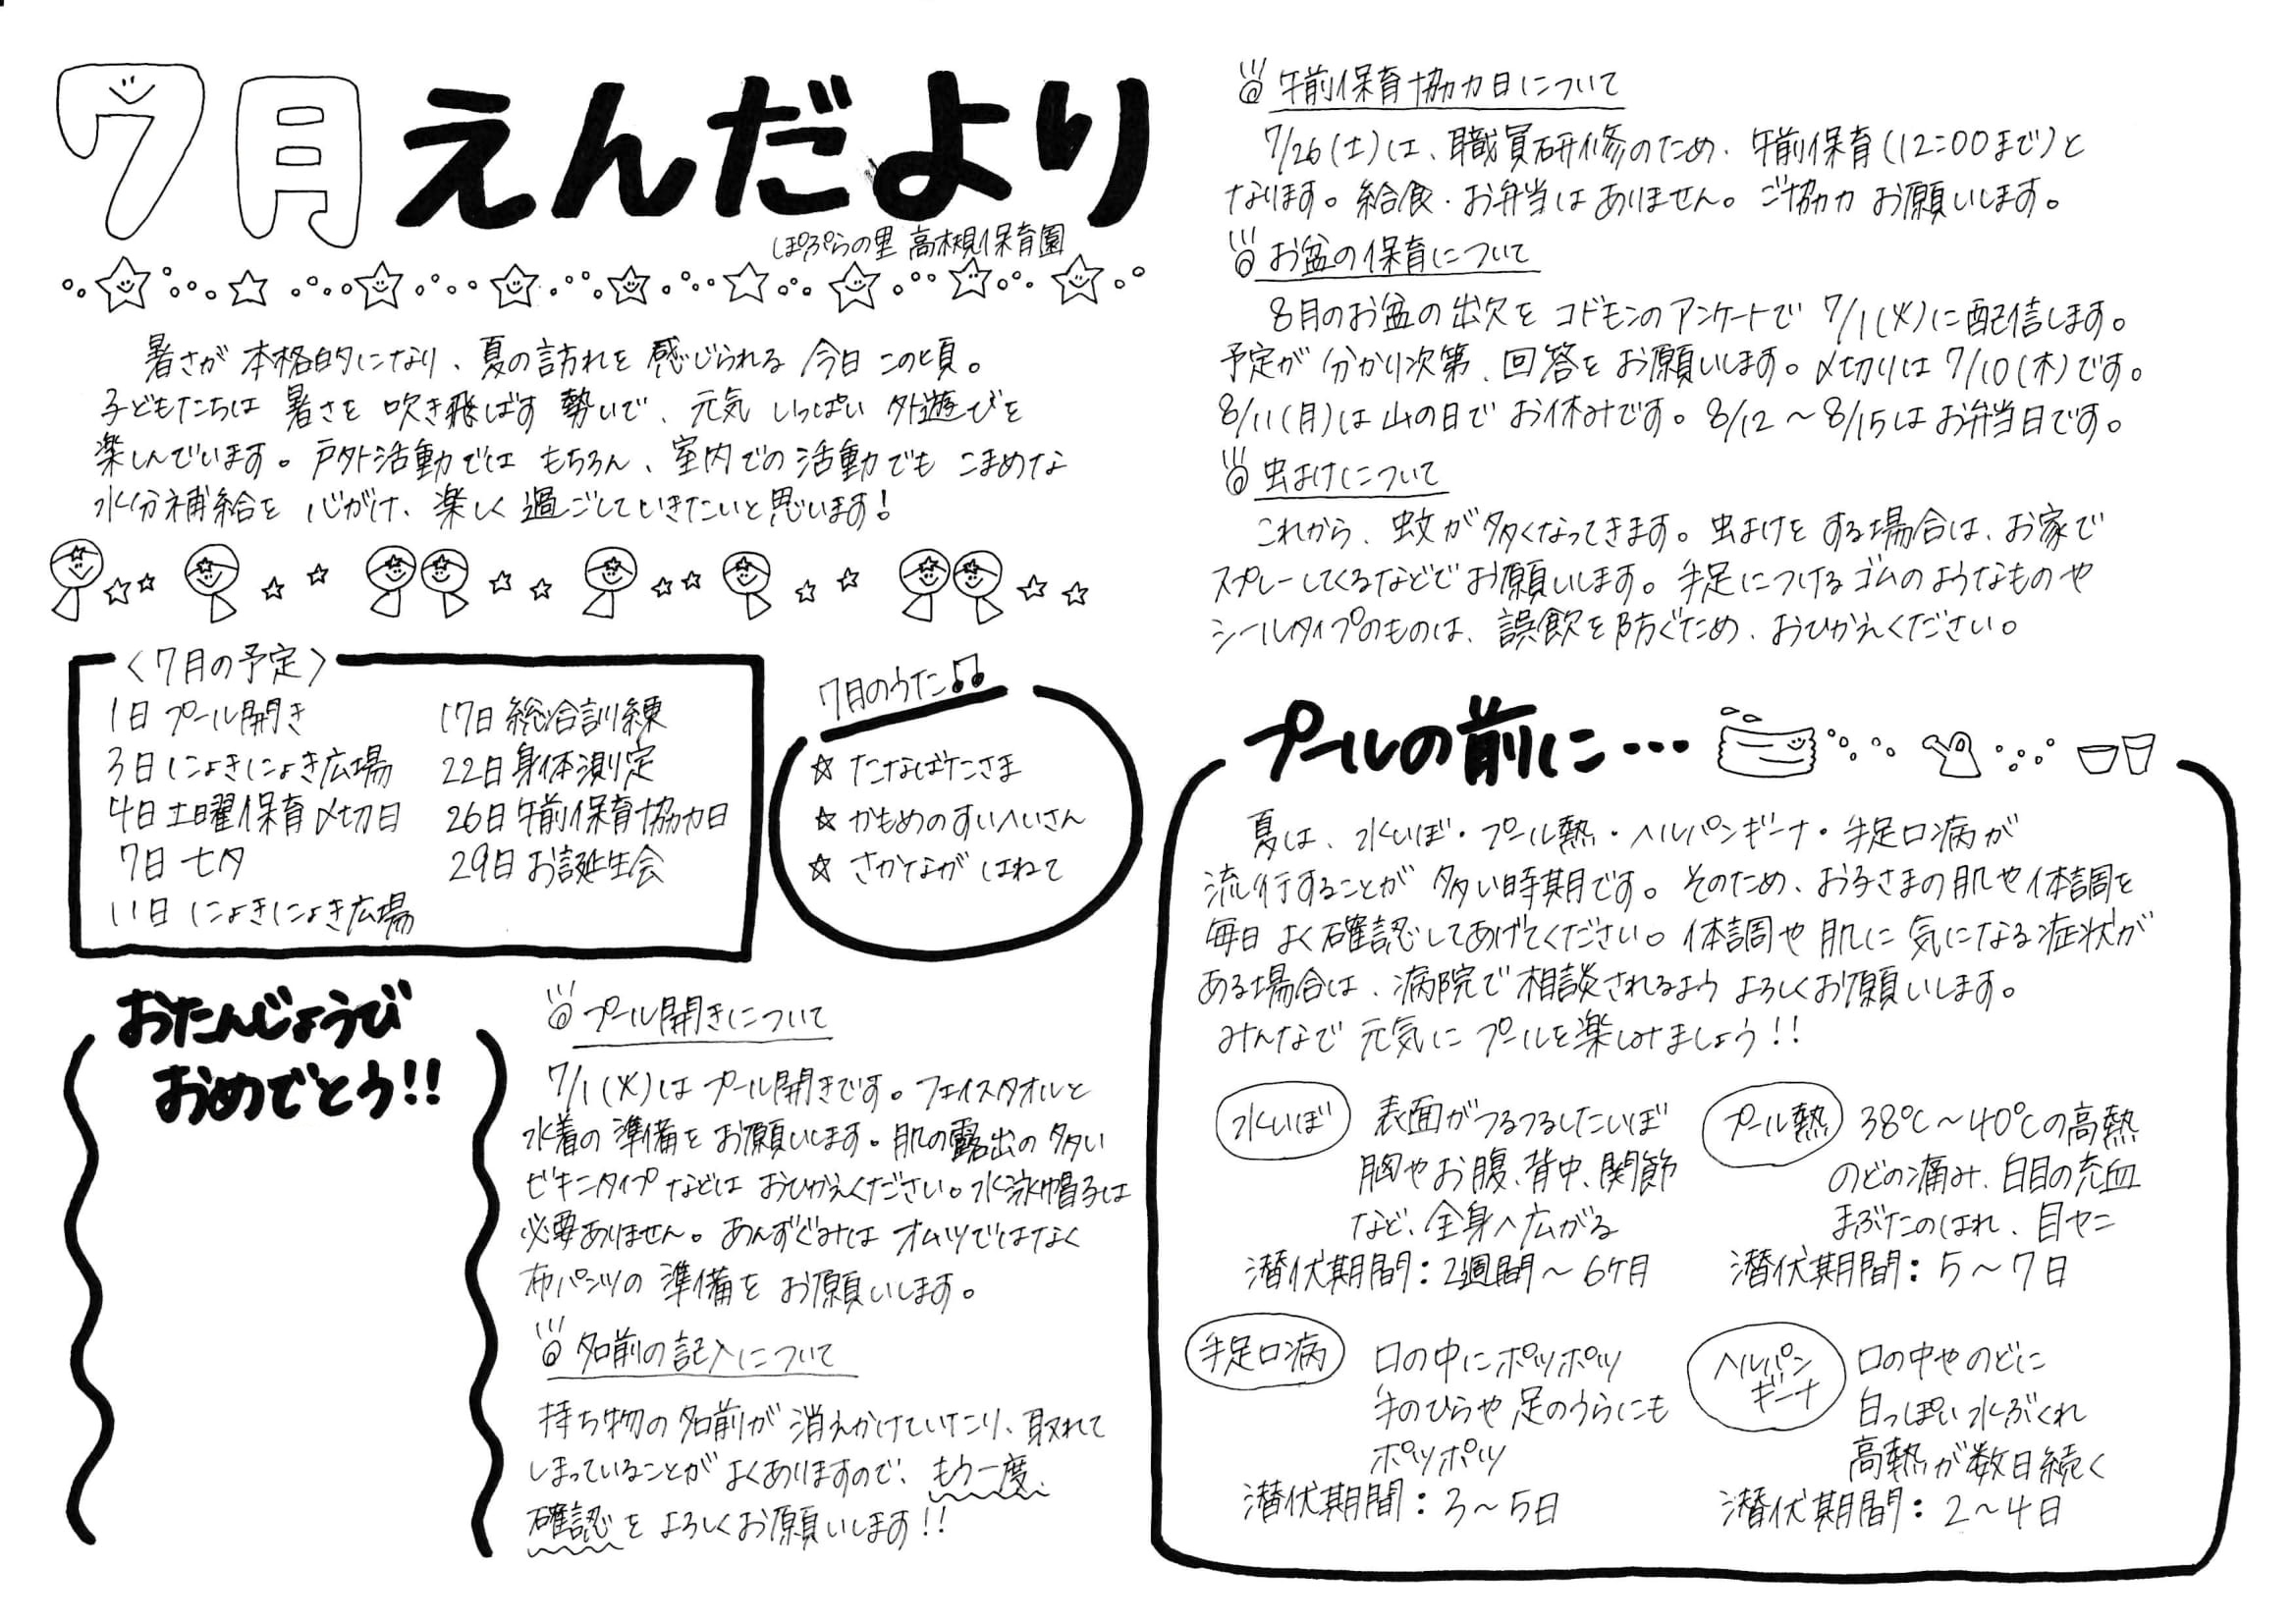 7月えんだより
ぽぷらの里 高槻保育園
暑さが本格的になり、夏の訪れを感じられる今日この頃。
子どもたちは暑さを吹き飛ばす勢いで、元気いっぱい外遊びを
楽しんでいます。戸外活動ではもちろん、室内での活動でもこまめな
水分補給を心がけ、楽しく過ごしていきたいと思います!
〈7月の予定〉
1日 プール開き
3日 にょきにょき広場
4日 土曜保育〆切日
7日 七夕
11日 にょきにょき広場
17日 総合訓練
22日 身体測定
26日 午前保育協力日
29日 お誕生会
7月のうた♫
☆ たなばたさま
☆ かもめのすいへいさん
☆ さかながはねて
おたんじょうび
おめでとう!!
プール開きについて
7/1(火)はプール開きです。フェイスタオルと
水着の準備をお願いします。肌の露出の多い
ビキニタイプなどはおひかえください。水泳帽子は
必要ありません。あんずぐみはオムツではなく
布パンツの準備をお願いします。
名前の記入について
持ち物の名前が消えかけていたり、取れて
しまっていることがよくありますので、もう一度、
確認をよろしくお願いします!!
午前保育協力日について
7/26(土)は、職員研修のため、午前保育(12:00まで)と
なります。給食・お弁当はありません。ご協力お願いします。
お盆の保育について
8月のお盆の出欠をコドモンのアンケートで7/1(火)に配信します。
予定が分かり次第、回答をお願いします。〆切りは7/10(木)です。
8/11(月)は山の日でお休みです。8/12〜8/15はお弁当日です。
虫よけについて
これから、蚊が多くなってきます。虫よけをする場合は、お家で
スプレーしてくるなどでお願いします。手足につけるゴムのようなものや
シールタイプのものは、誤飲を防ぐため、おひかえください。
プールの前に…
夏は、水いぼ・プール熱・ヘルパンギーナ・手足口病が
流行することが多い時期です。そのため、お子さまの肌や体調を
毎日よく確認してあげてください。体調や肌に気になる症状が
ある場合は、病院で相談されるようよろしくお願いします。
みんなで元気にプールを楽しみましょう!!
水いぼ
表面がつるつるしたいぼ
胸やお腹、背中、関節
など、全身へ広がる
潜伏期間:2週間〜6ケ月
プール熱
38℃〜40℃の高熱
のどの痛み、白目の充血
まぶたのはれ、目ヤニ
潜伏期間:5〜7日
手足口病
口の中にポツポツ
手のひらや足のうらにも
ポツポツ
潜伏期間:3〜5日
ヘルパン
ギーナ
口の中やのどに
白っぽい水ぶくれ
高熱が数日続く
潜伏期間:2〜4日